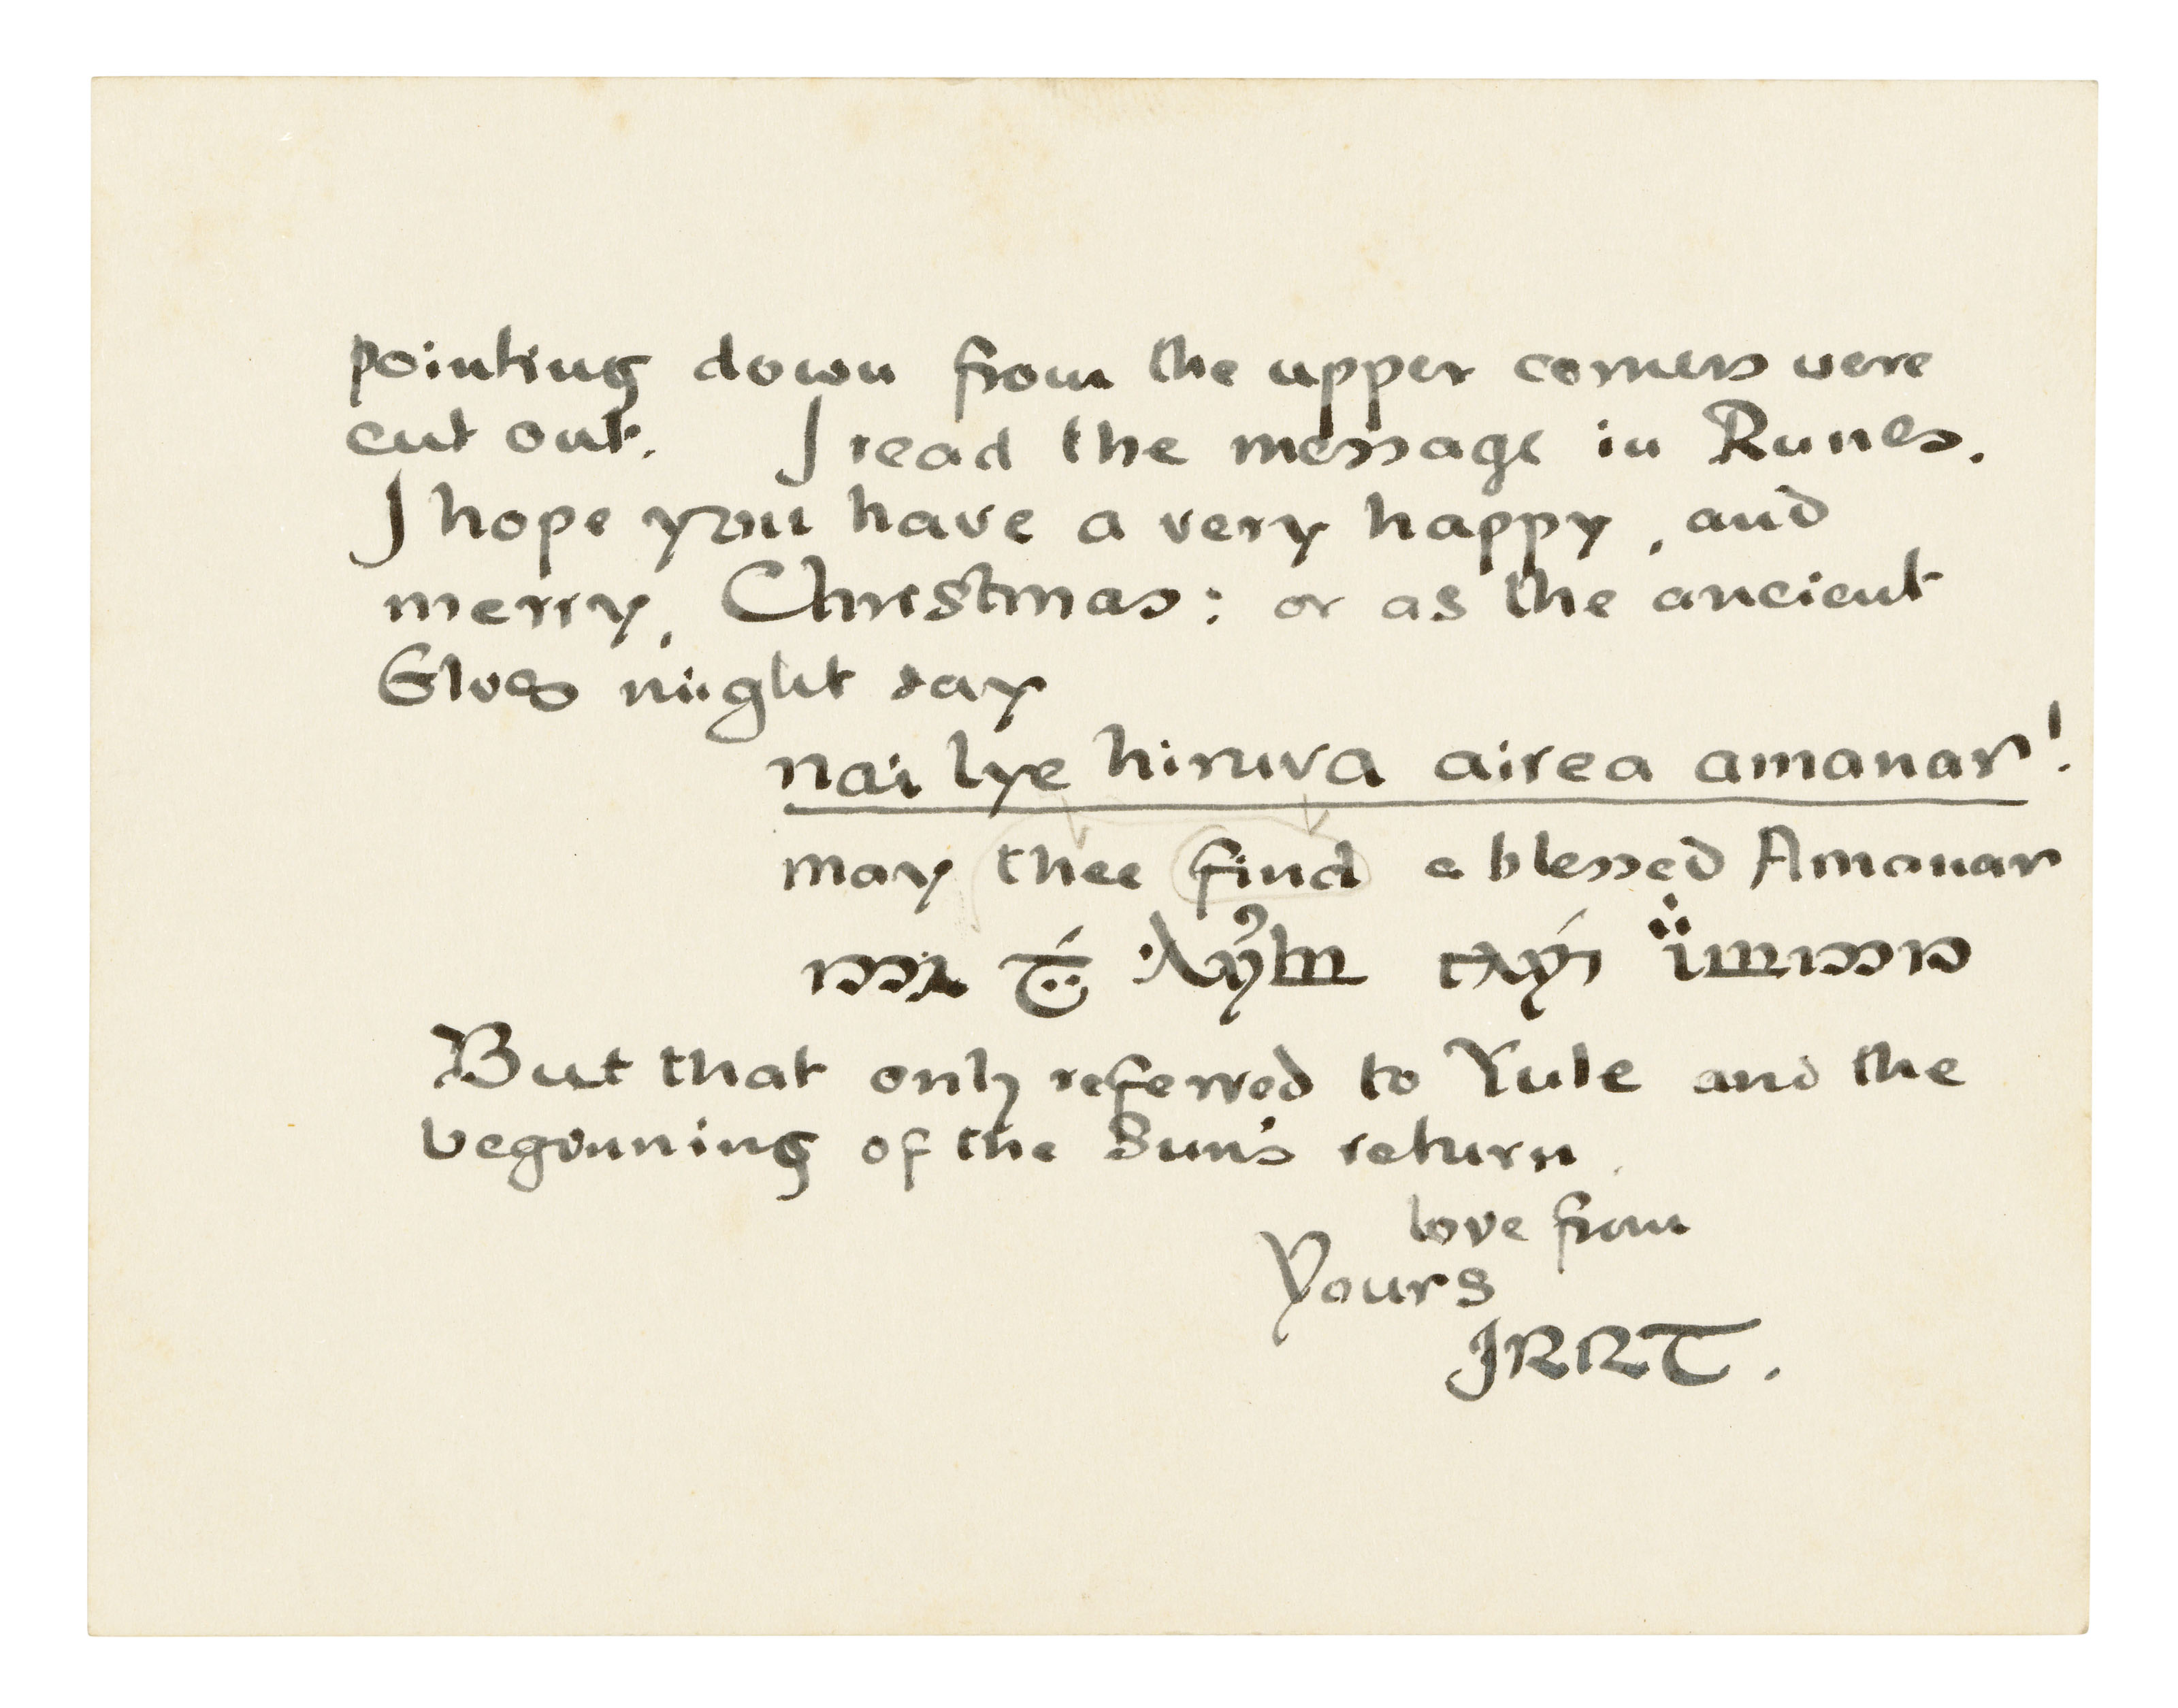 pointing down from the upper corners were
cut out. I read the message in Runes.
I hope you have a very happy, and
merry, Christmas: or as the ancient
Elves might say
nai lye hiruva airea amanar!
may thee find a blessed Amanar
But that only referred to Yule and the
beginning of the Sun's return.
love from
Yours
JRRT.